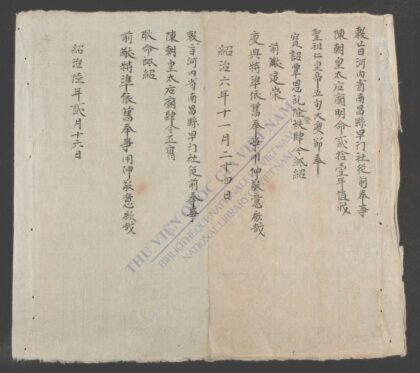 敕旨河內省南昌縣旱行社從前奉事
陳朝皇太后廟明命貳拾壹年值我
聖祖仁皇帝五旬大慶節奉
寶詔覃恩禮隆秩肆今丕紹
前猷
慶典特準依舊奉事用伸敬意欽哉
紹治六年十一月二十四日
敕旨河內省南昌縣旱行社從前奉事
陳朝皇太后廟肆今丕膺
耿命丕紹
前猷特準依舊奉事用伸敬意欽哉
紹治陸年貳月十六日
THƯ VIỆN QUỐC GIA VIỆT NAM
BIBLIOTHÈQUE NATIONALE DU VIETNAM
NATIONAL LIBRARY OF VIETNAM